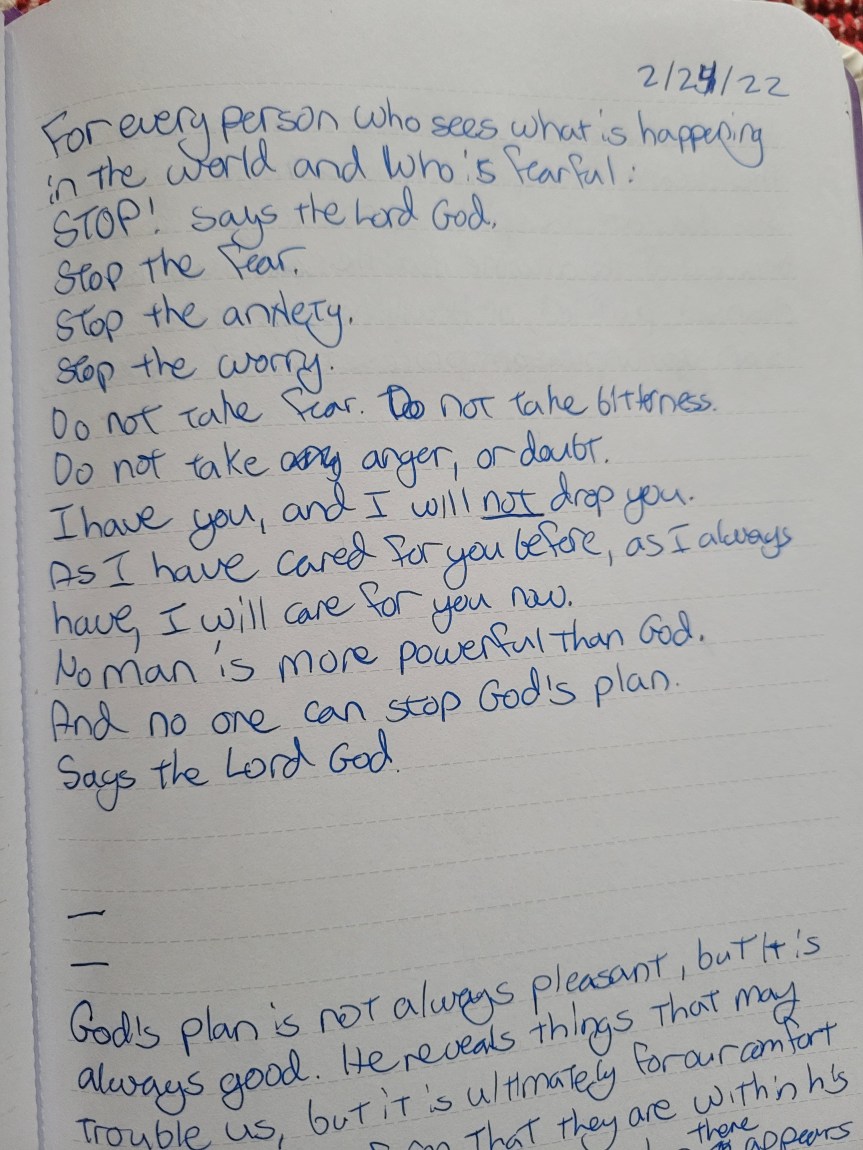 2/24/22
For every person who sees what is happening
in the world and who's fearful:
STOP! Says the Lord God.
Stop the fear.
Stop the anxiety.
Stop the worry.
Do not take fear. Do not take bitterness.
Do not take anger, or doubt.
I have you, and I will not drop you.
As I have cared for you before, as I always
have, I will care for you now.
No man is more powerful than God.
And no one can stop God's plan.
Says the Lord God.
God's plan is not always pleasant, but it is
always good. He reveals things that may
trouble us, but it is ultimately for our comfort
that they are within his
there
appears